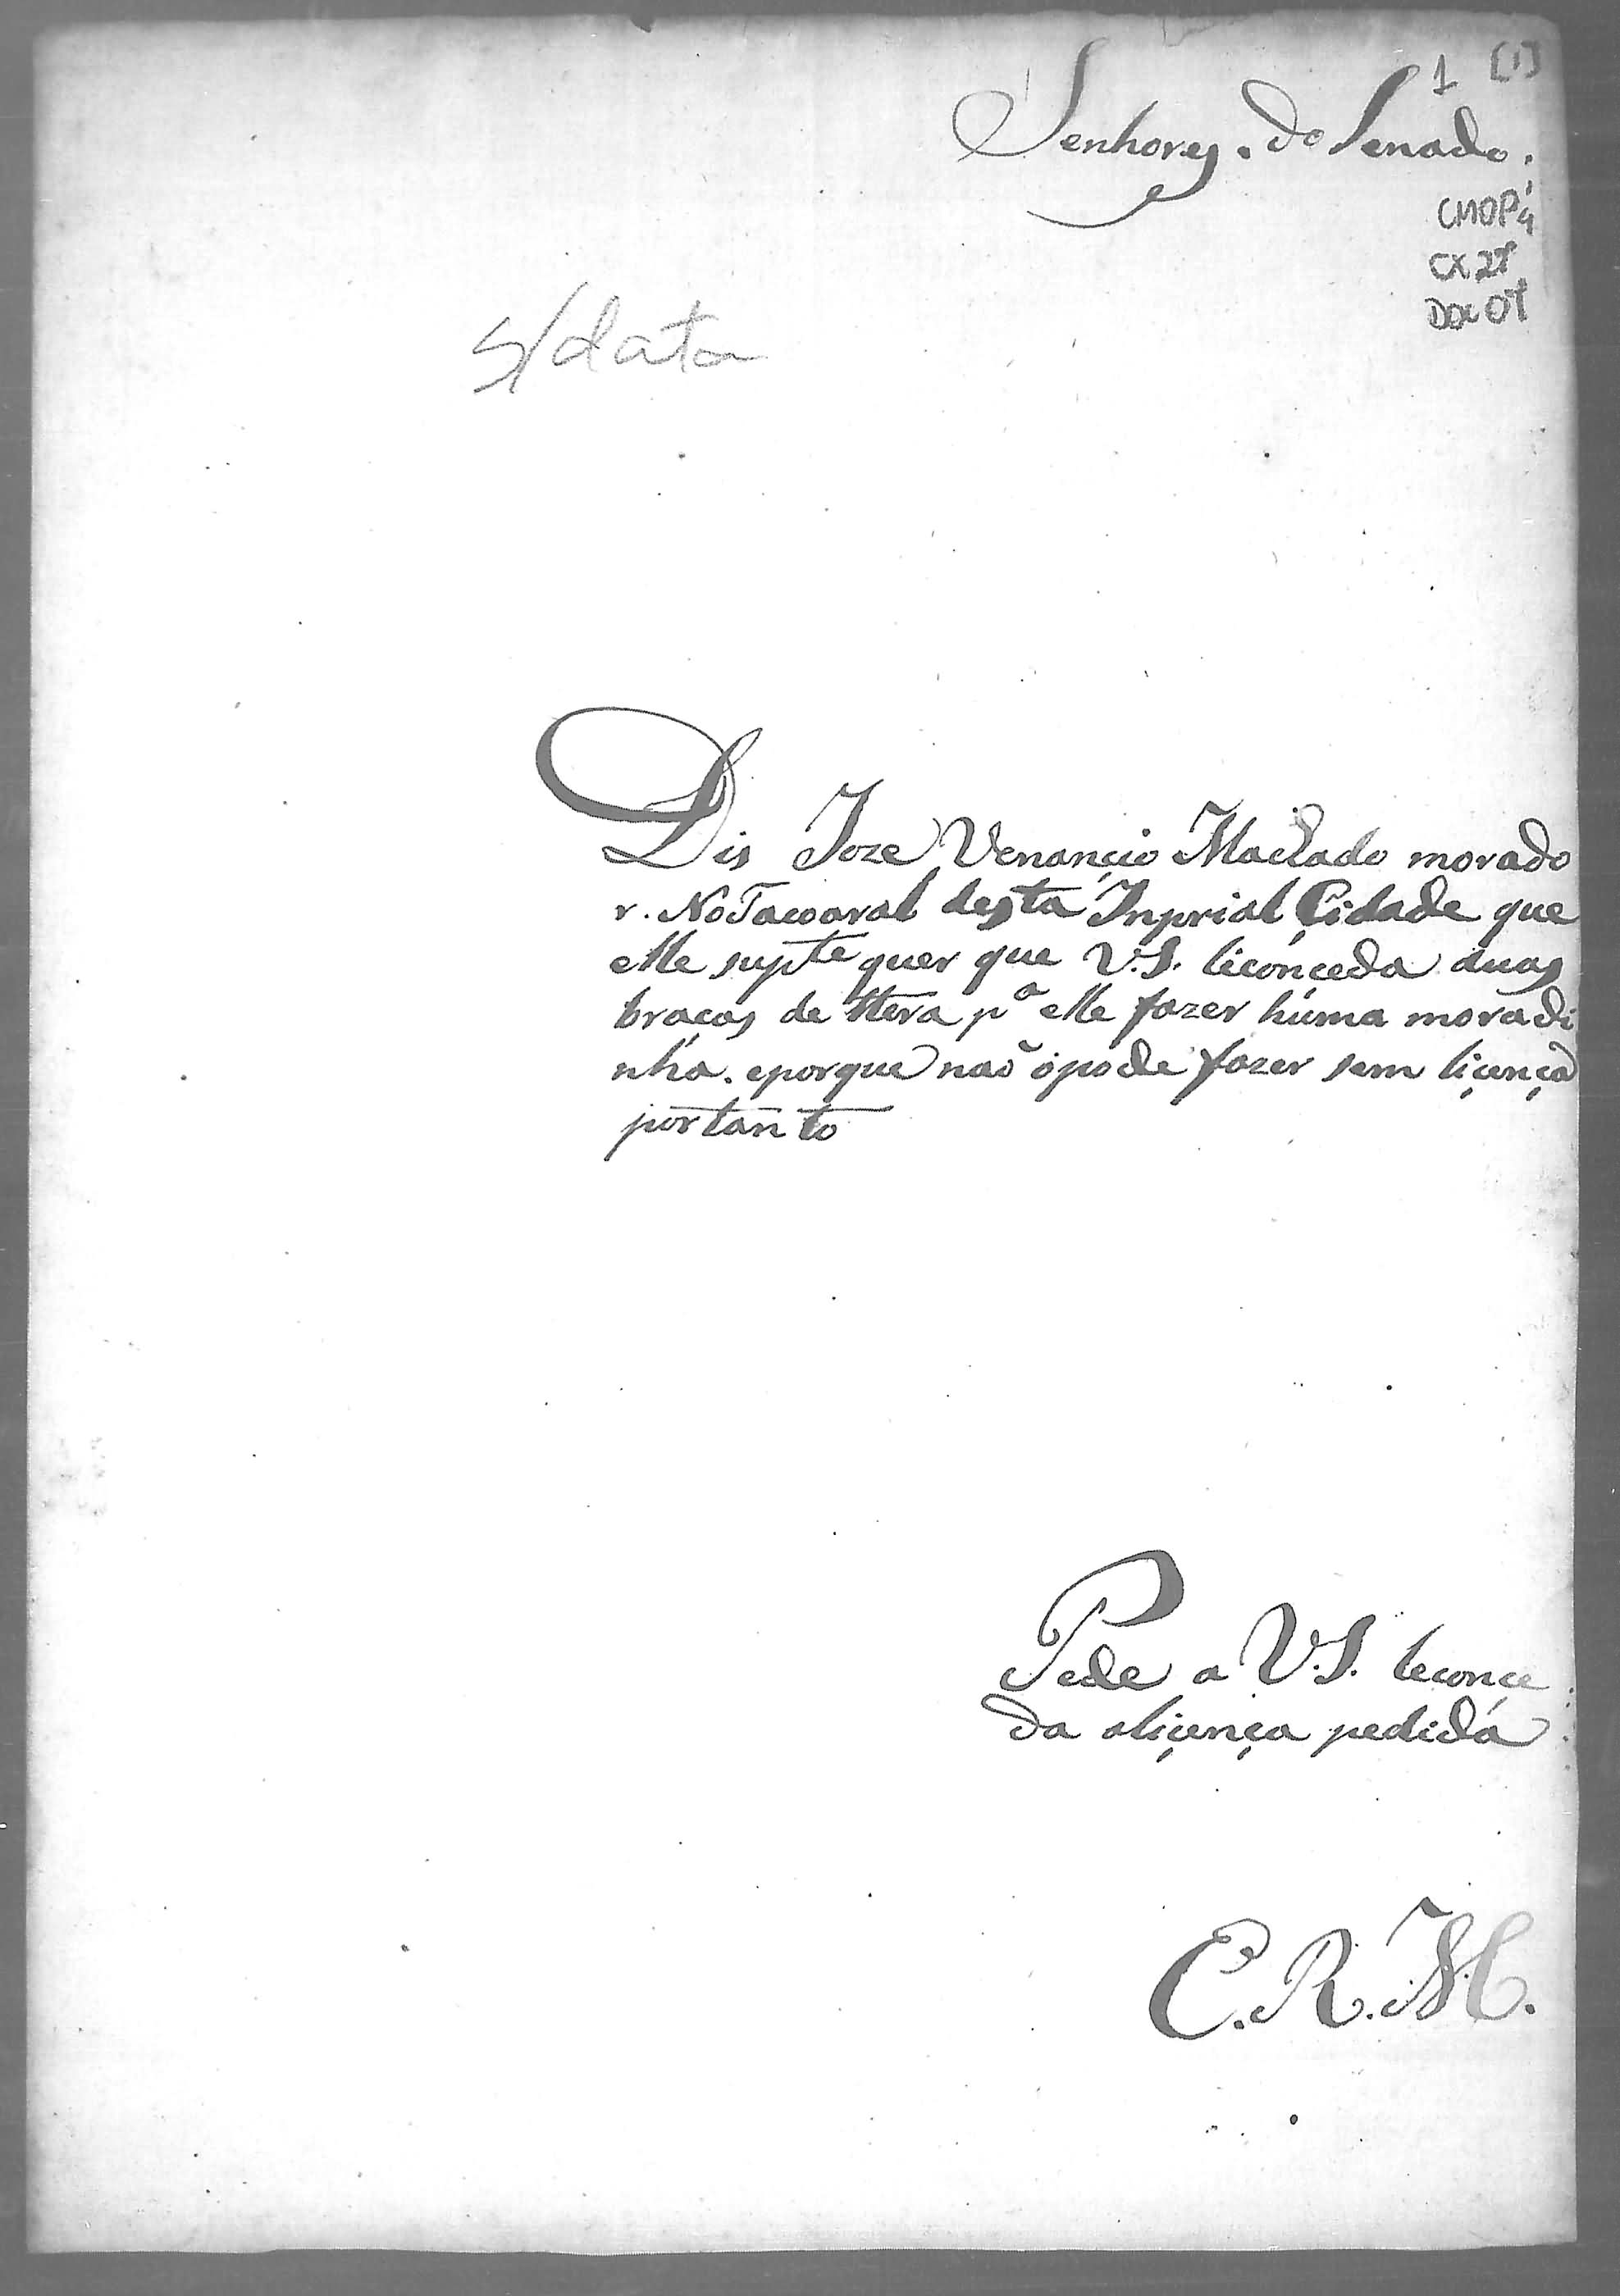 1 [1]
Senhores. do Senado.
CMOP
CX
DOC
s/data
Dis Joze Venançio Machado morado
r. No Tacoaral desta Inprial Çidade que
elle supte quer que V.S. leconçeda duas
braças de ttera pª elle fazer húma moradi
nha. eporque naõ ópode fazer sem liçença
portanto
Pede a V.S. leconçe
da aliçença pedidá
E. R. M.